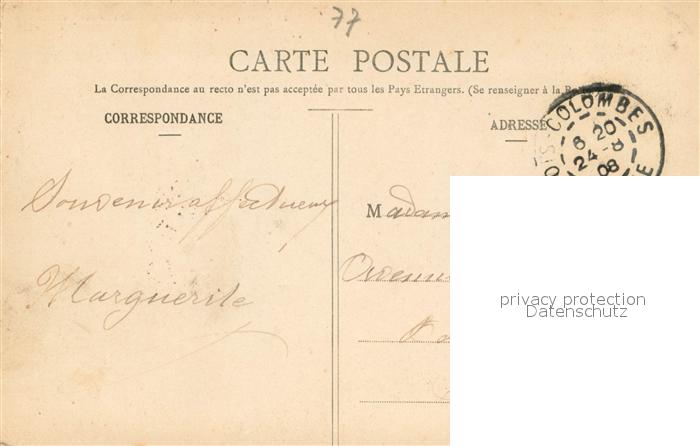 77
CARTE POSTALE
La Correspondance au recto n'est pas acceptée par tous les Pays Etrangers. (Se renseigner à la
CORRESPONDANCE
ADRESSE
COLOMBES
6 20
24 -8
08
Souvenir affectueux
Marguerite
Madam
privacy protection
Datenschutz